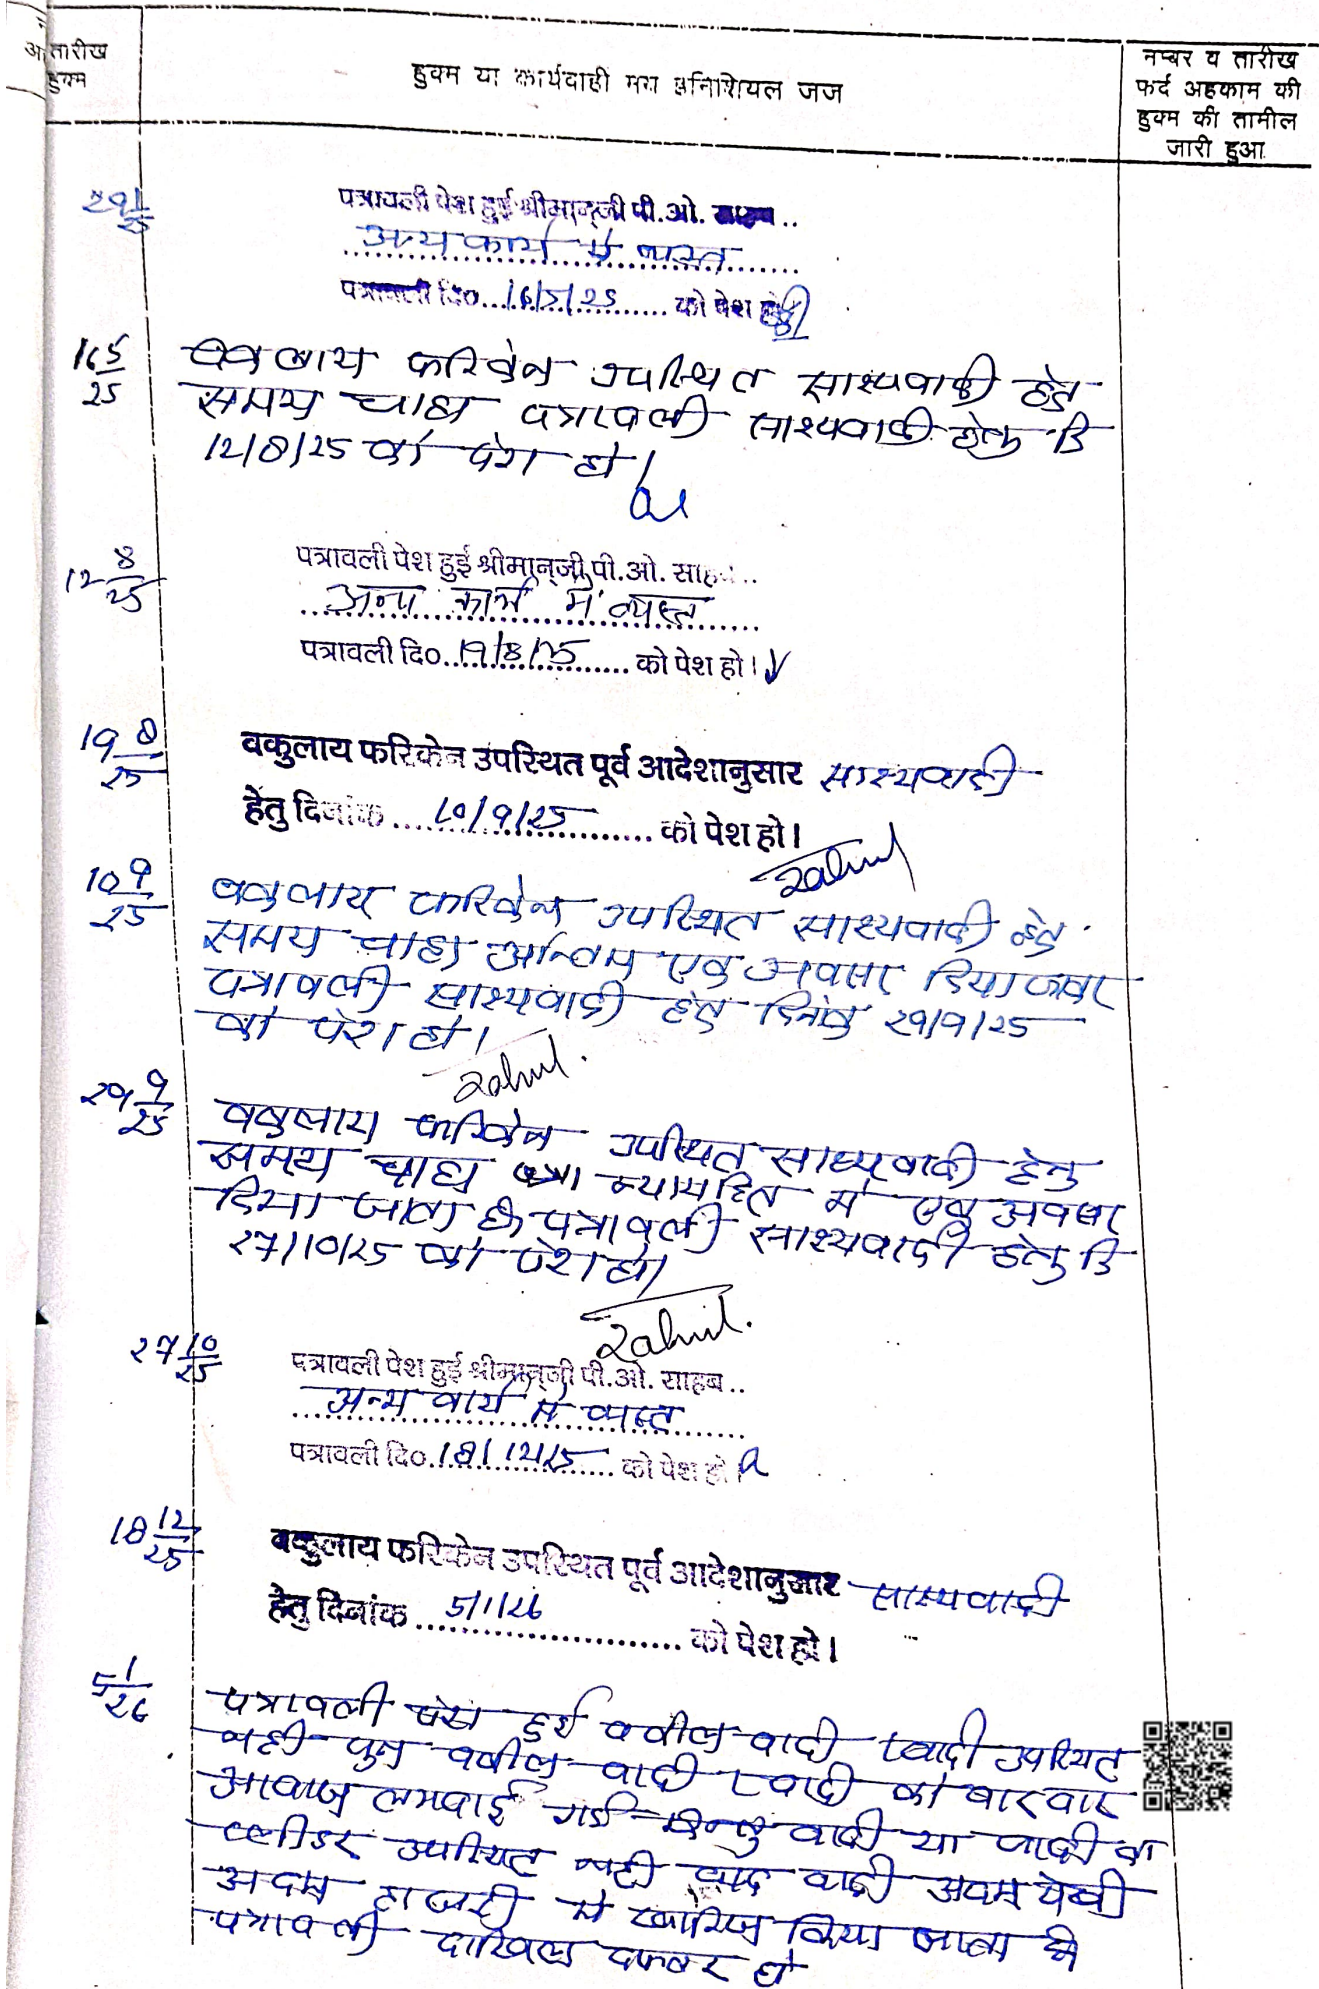 तारीख
हुक्म
हुक्म या कार्यवाही मय इनिशियल जज
नम्बर व तारीख
फर्द अहकाम की
हुक्म की तामील
जारी हुआ
29/1/25
पत्रावली पेश हुई श्रीमान्‌जी पी.ओ. साहब..
अन्य कार्य में व्यस्त
पत्रावली दि० 16/5/25 को पेश हो
16/5/25
वकुलाय फरिकेन उपस्थित साक्ष्यवादी हेतु
समय चाहा पत्रावली साक्ष्यवादी हेतु दि
12/8/25 को पेश हो।
12/8/25
पत्रावली पेश हुई श्रीमान्‌जी पी.ओ. साहब..
अन्य कार्य में व्यस्त
पत्रावली दि० 19/8/25 को पेश हो।
19/8/25
वकुलाय फरिकेन उपस्थित पूर्व आदेशानुसार साक्ष्यवादी
हेतु दिनांक 10/9/25 को पेश हो।
Rahul
10/9/25
वकुलाय फरिकेन उपस्थित साक्ष्यवादी हेतु
समय चाहा अन्तिम एक अवसर दिया जाकर
पत्रावली साक्ष्यवादी हेतु दिनांक 29/9/25
को पेश हो।
Rahul.
29/9/25
वकुलाय फरिकेन उपस्थित साक्ष्यवादी हेतु
समय चाहा न्यायहित में एक अवसर
दिया जाता है पत्रावली साक्ष्यवादी हेतु दि
27/10/25 को पेश हो।
Rahul.
27/10/25
पत्रावली पेश हुई श्रीमान्‌जी पी.ओ. साहब..
अन्य कार्य में व्यस्त
पत्रावली दि० 18/12/25 को पेश हो।
18/12/25
वकुलाय फरिकेन उपस्थित पूर्व आदेशानुसार साक्ष्यवादी
हेतु दिनांक 5/1/26 को पेश हो।
5/1/26
पत्रावली पेश हुई वकील वादी वादी उपस्थित
नही पुन वकील वादी वादी को बारबार
आवाज लगवाई गई किन्तु वादी या वादी का
प्लीडर उपस्थित नही वाद वादी अदम पेरवी
अदम हाजरी मे खारिज किया जाता है
पत्रावली दाखिल दफ्तर हो